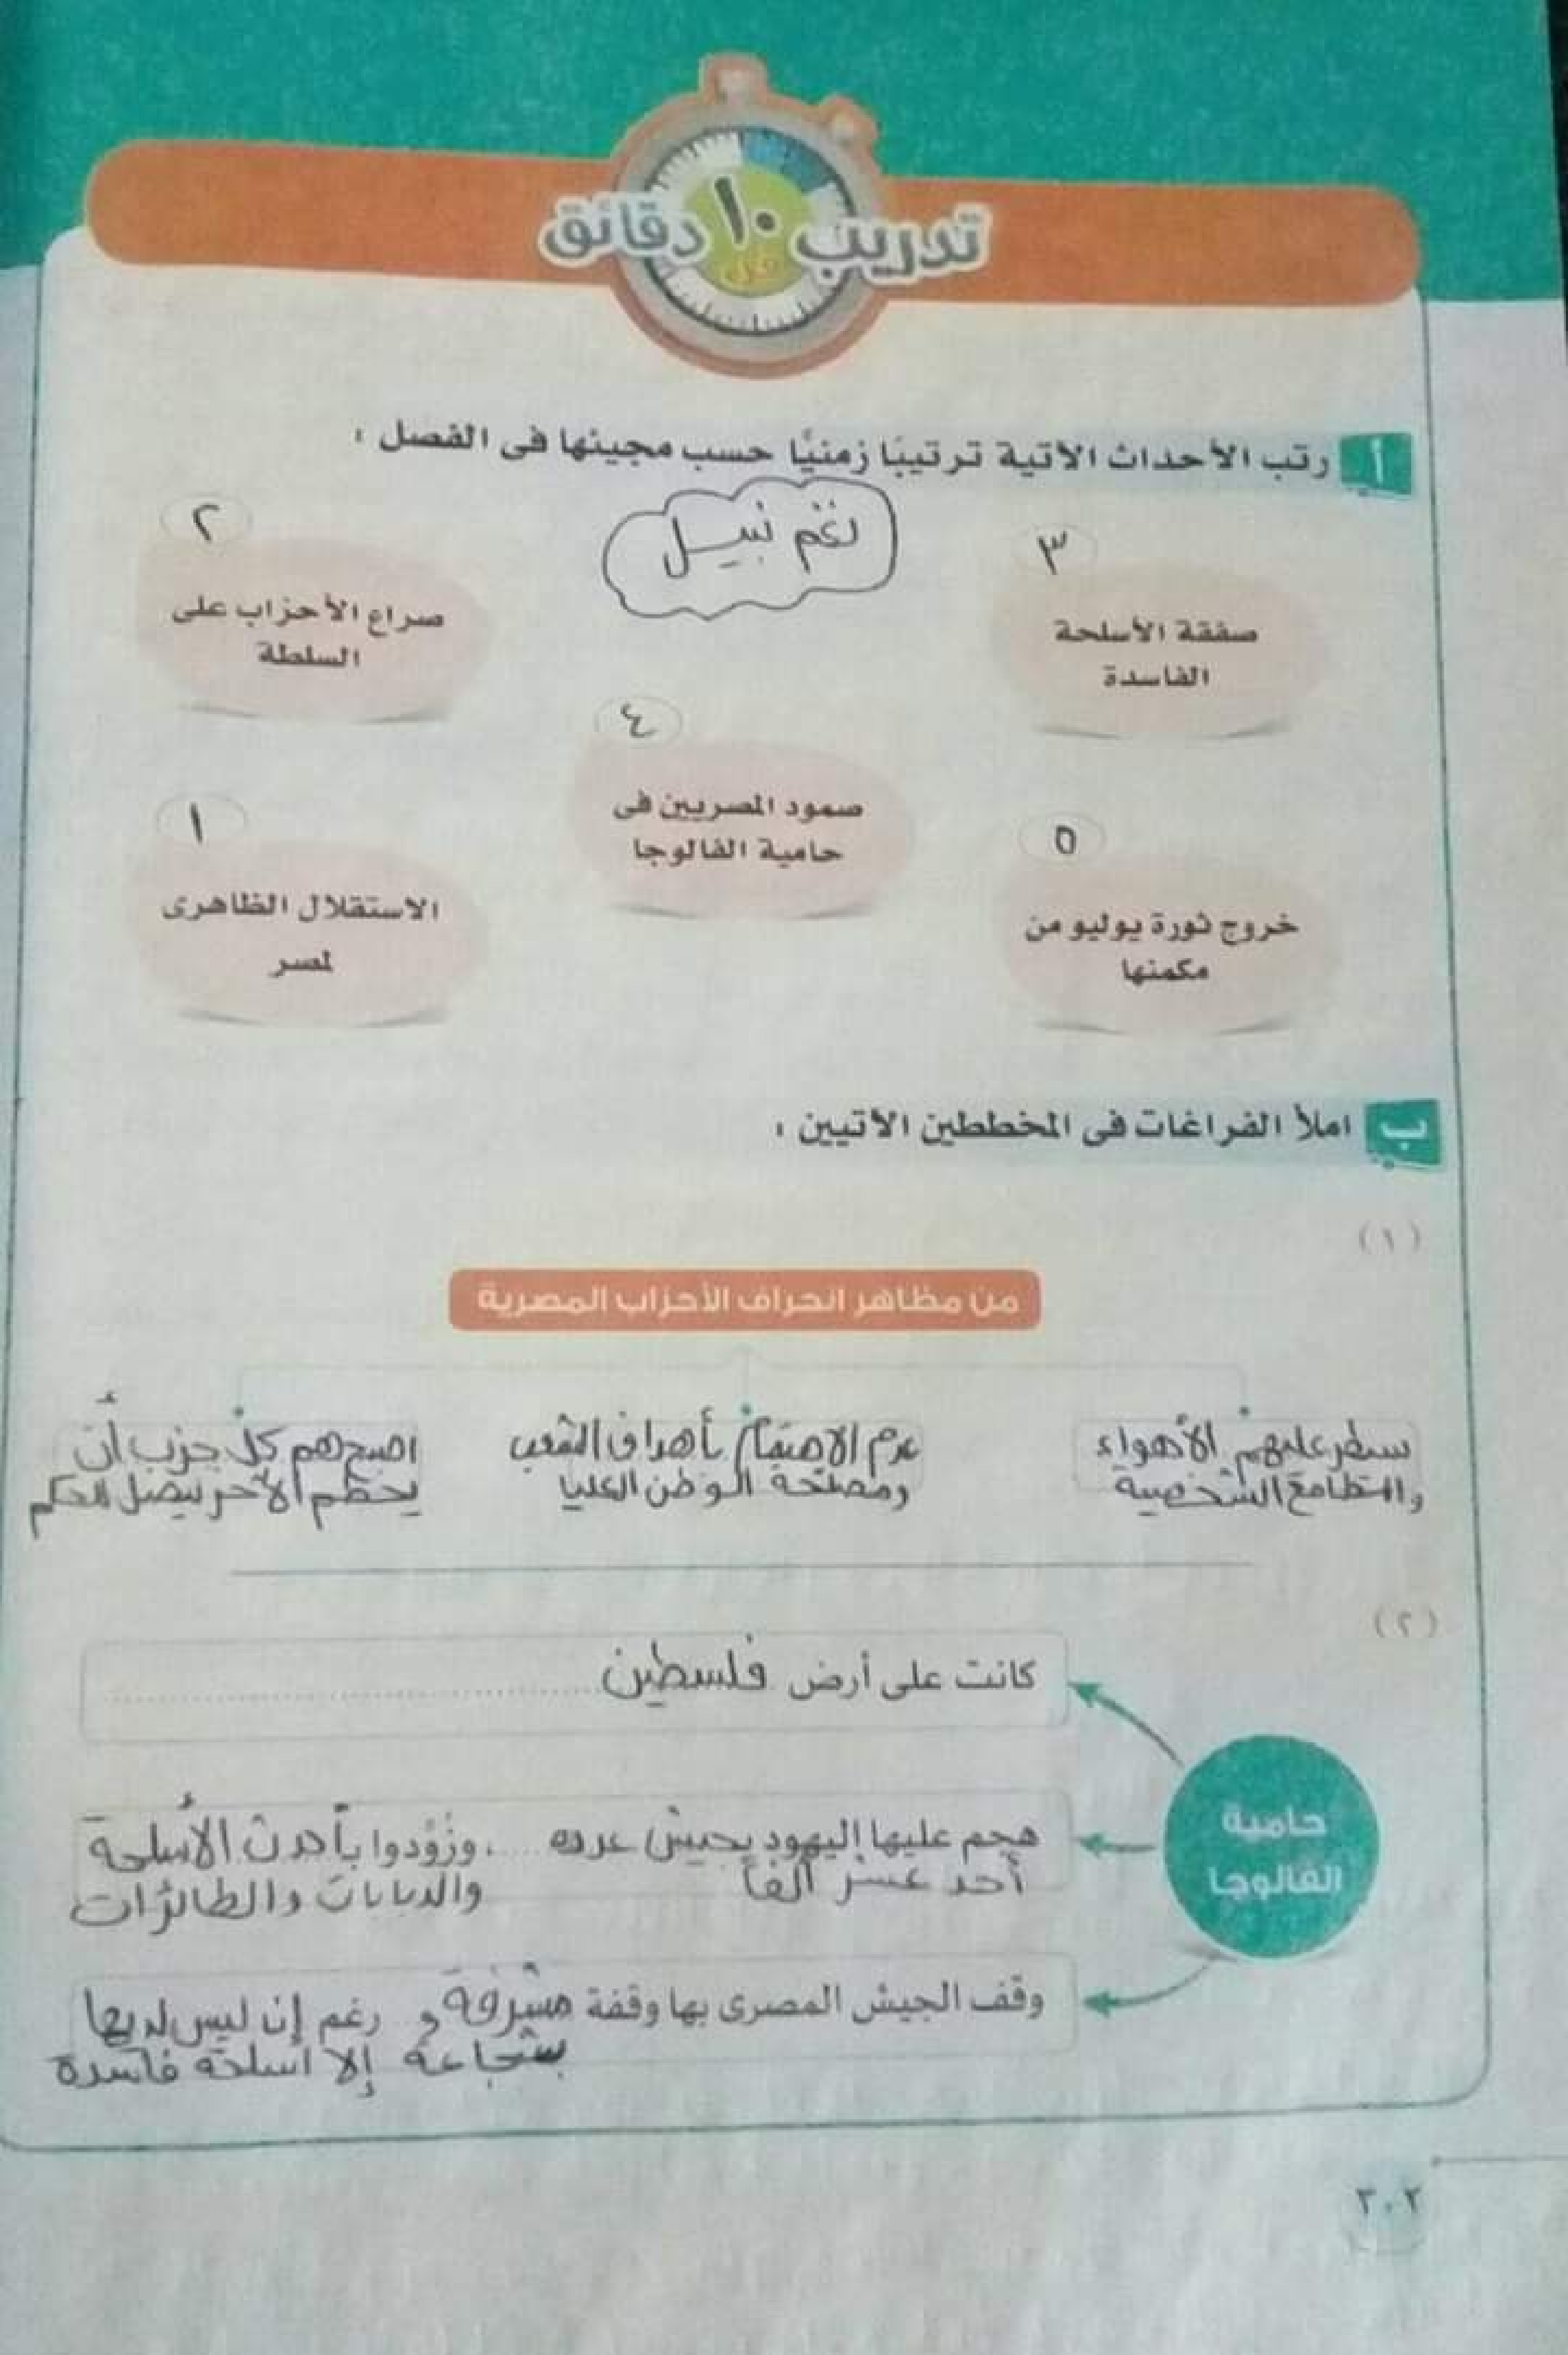 تدريب ١٠ دقائق
فى
أ رتب الأحداث الآتية ترتيبًا زمنيًا حسب مجيئها فى الفصل :
نغم نبيل
٣
صفقة الأسلحة
الفاسدة
٢
صراع الأحزاب على
السلطة
٤
صمود المصريين فى
حامية الفالوجا
٥
خروج ثورة يوليو من
مكمنها
١
الاستقلال الظاهرى
لمصر
ب املأ الفراغات فى المخططين الآتيين :
(١)
من مظاهر انحراف الأحزاب المصرية
سيطر عليهم الأهواء
والمطامع الشخصية
عدم الاهتمام بأهداف الشعب
ومصلحة الوطن العليا
اصبح هم كل حزب أن
يحطم الآخر ليصل للحكم
(٢)
حامية
الفالوجا
كانت على أرض فلسطين
هجم عليها اليهود بجيش عدده ...... ، وزُوِّدوا بأحدث الأسلحة
أحد عشر ألفاً والدبابات والطائرات
وقف الجيش المصرى بها وقفة مشرفة و رغم إن ليس لديها
بشجاعة إلا اسلحة فاسدة
٣٠٢